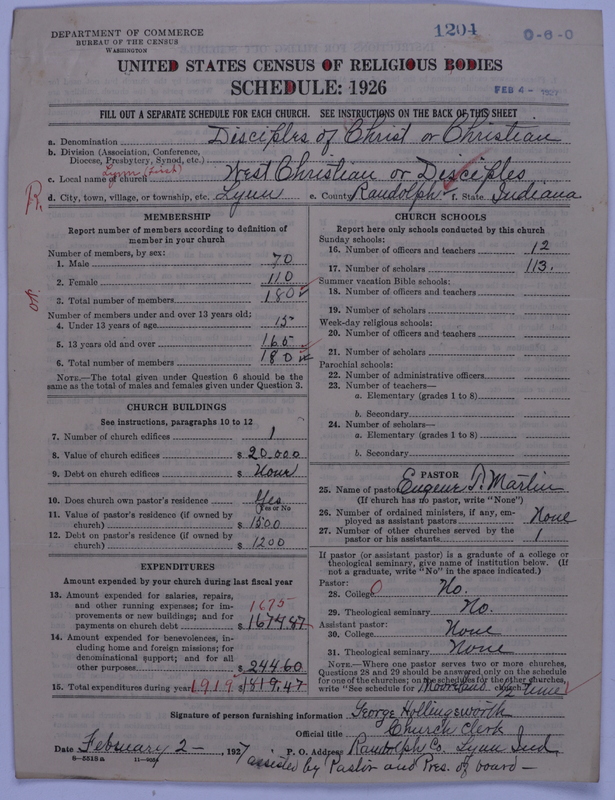 DEPARTMENT OF COMMERCE
BUREAU OF THE CENSUS
WASHINGTON
1204
0-6-0
UNITED STATES CENSUS OF RELIGIOUS BODIES
SCHEDULE: 1926
FEB 4 - 1927
FILL OUT A SEPARATE SCHEDULE FOR EACH CHURCH. SEE INSTRUCTIONS ON THE BACK OF THIS SHEET
a. Denomination Disciples of Christ or Christian
b. Division (Association, Conference,
Diocese, Presbytery, Synod, etc.)
Lynn (First)
c. Local name of church West Christian or Disciples
R.
d. City, town, village, or township, etc. Lynn e. County Randolph f. State Indiana
MEMBERSHIP
Report number of members according to definition of
member in your church
Number of members, by sex:
1. Male 70
2. Female 110
3. Total number of members 180
Number of members under and over 13 years old:
4. Under 13 years of age 15
5. 13 years old and over 165
6. Total number of members 180
NOTE.—The total given under Question 6 should be the
same as the total of males and females given under Question 3.
CHURCH BUILDINGS
See instructions, paragraphs 10 to 12
7. Number of church edifices 1
8. Value of church edifices $ 20.000
9. Debt on church edifices $ None
10. Does church own pastor's residence Yes
(Yes or No
11. Value of pastor's residence (if owned by
church) $ 1500
12. Debt on pastor's residence (if owned by
church) $ 1200
EXPENDITURES
Amount expended by your church during last fiscal year
13. Amount expended for salaries, repairs,
and other running expenses; for im-
provements or new buildings; and for
payments on church debt $ 1674.87
1675
14. Amount expended for benevolences, in-
cluding home and foreign missions; for
denominational support; and for all
other purposes $ 244.60
15. Total expenditures during year 1919 $ 1819.47
CHURCH SCHOOLS
Report here only schools conducted by this church
Sunday schools:
16. Number of officers and teachers 12
17. Number of scholars 113.
Summer vacation Bible schools:
18. Number of officers and teachers
19. Number of scholars
Week-day religious schools:
20. Number of officers and teachers
21. Number of scholars
Parochial schools:
22. Number of administrative officers
23. Number of teachers—
a. Elementary (grades 1 to 8)
b. Secondary
24. Number of scholars—
a. Elementary (grades 1 to 8)
b. Secondary
PASTOR
25. Name of pastor Eugene T. Martin
(If church has no pastor, write "None")
26. Number of ordained ministers, if any, em-
ployed as assistant pastors None
27. Number of other churches served by the
pastor or his assistants 1
If pastor (or assistant pastor) is a graduate of a college or
theological seminary, give name of institution below. (If
not a graduate, write "No" in the space indicated.)
Pastor:
28. College 0 No.
29. Theological seminary No.
Assistant pastor:
30. College None
31. Theological seminary None
NOTE.—Where one pastor serves two or more churches,
Questions 28 and 29 should be answered only on the schedule
for one of the churches; on the schedules for the other churches,
write "See schedule for Mooreland church" 1/2 time
Signature of person furnishing information George Hollingsworth
Official title Church Clerk
Date February 2 - , 1927 P. O. Address Randolph Co. Lynn Ind.
8-5515a 11-9054
assisted by Pastor and Pres. of board -